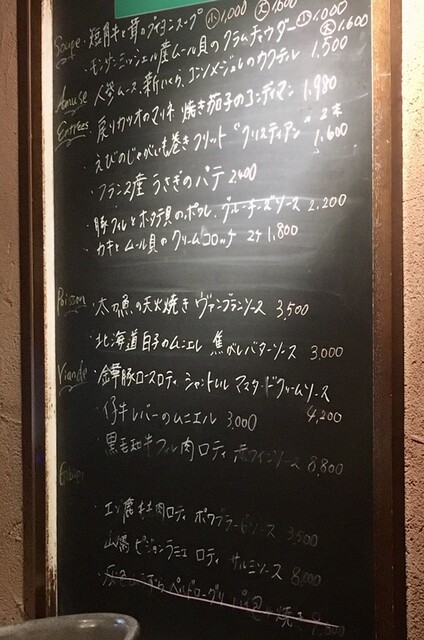 Soupe ・短角牛と茸のブイヨンスープ 小1,000 大1,600
・モンサンミッシェル産ムール貝のクラムチャウダー 小1,000 大1,600
Amuse 人参ムース、新いくら、コンソメジュレのカクテル 1,500
Entrées ・戻りカツオのマリネ 焼き茄子のコンディマン 1,980
・えびのじゃがいも巻きフリット "クリスティアン" 2本 1,600
・フランス産 うさぎのパテ 2400
・豚フィレとホタテ貝のポワレ、ブルーチーズソース 2,200
・カキとムール貝のクリームコロッケ 2ケ 1,800
Poisson ・太刀魚の天火焼き ヴァンブランソース 3,500
・北海道白子のムニエル 焦がしバターソース 3,000
Viande ・金華豚ロースロティ シャントレル マスタードクリームソース 4,200
・仔牛レバーのムニエル 3,000
・黒毛和牛フィレ肉ロティ 赤ワインソース 8,800
Gibier
・エゾ鹿もも肉ロティ ポワブラードソース 3,500
山鳩 ピジョンラミエ ロティ サルミソース 8,000